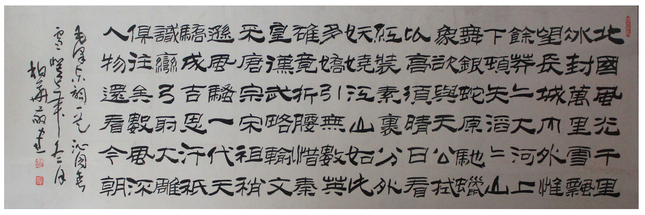 北國風光千里
冰封萬里雪飄
望長城內外惟
餘莽莽大河上
下頓失滔滔山
舞銀蛇原馳蠟
象欲與天公試
比高須晴日看
紅裝素裹分外
妖嬈江山如此
多嬌引無數英
雄競折腰惜秦
皇漢武略輸文
采唐宗宋祖稍
遜風騷一代天
驕成吉思汗祇
識彎弓射大雕
俱往矣數風流
人物還看今朝
毛澤東詞一首沁園春
雪